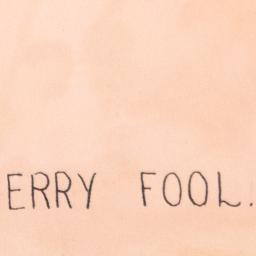 ERRY FOOL.